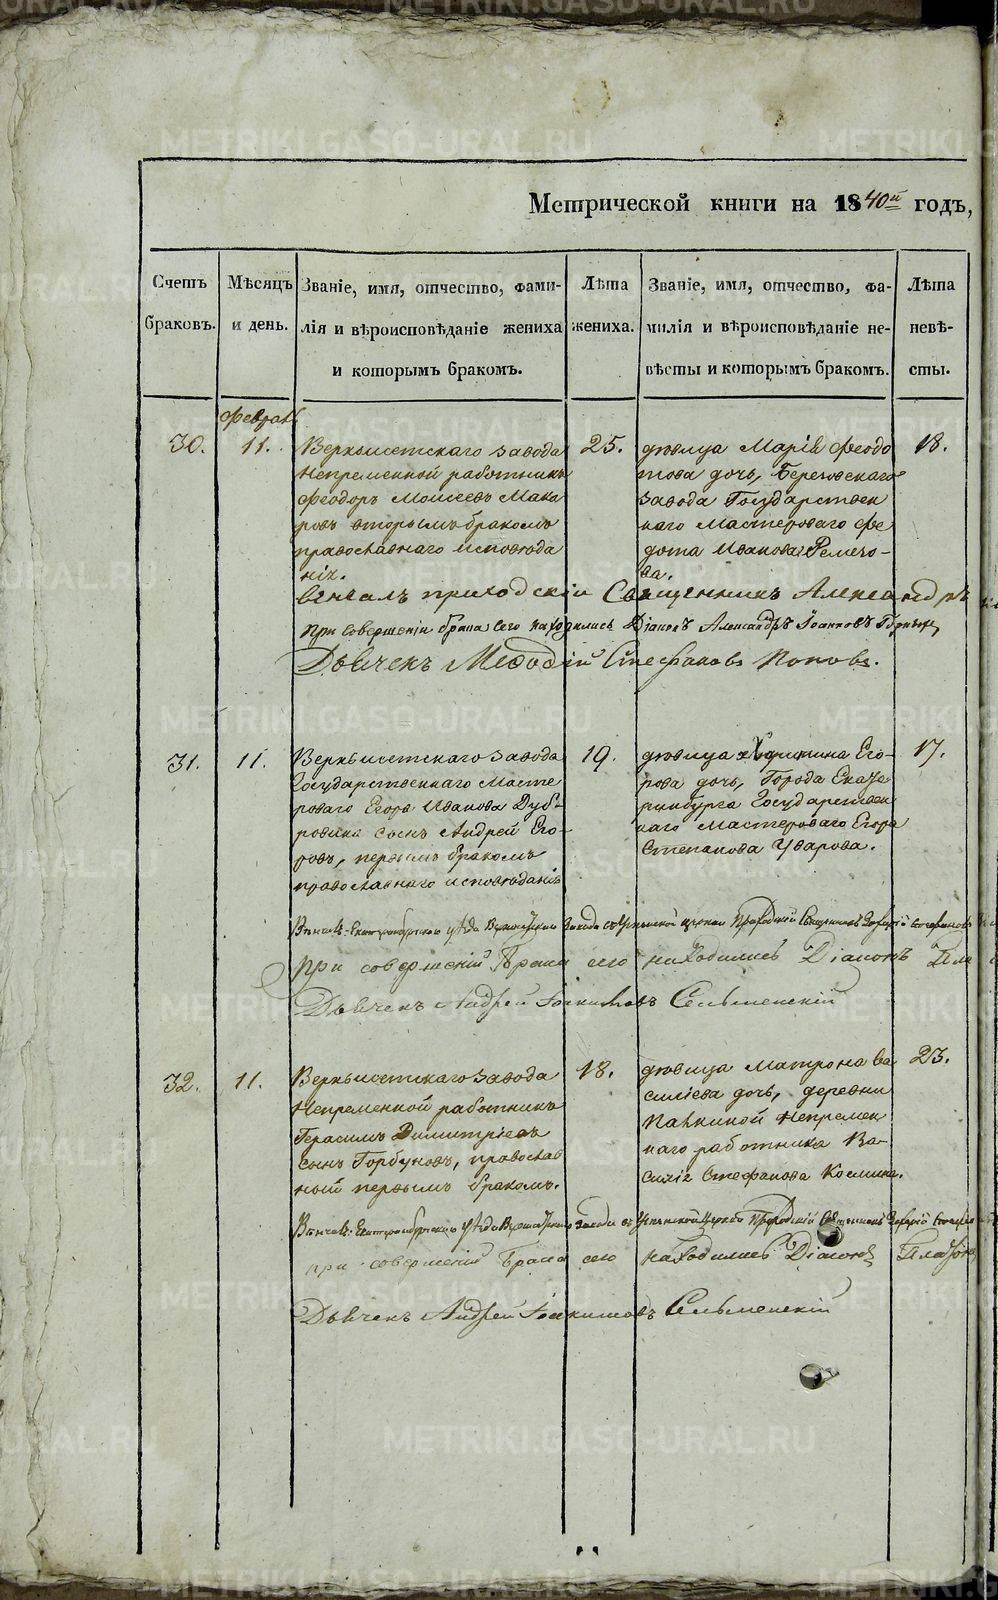 METRIKI.GASO-URAL.RU
Метрической книги на 1840й годъ,
Счетъ браковъ.
Мѣсяцъ и день.
Званіе, имя, отчество, фами-
лія и вѣроисповѣданіе жениха
и которымъ бракомъ.
Лѣта жениха.
Званіе, имя, отчество, фа-
милія и вѣроисповѣданіе не-
вѣсты и которымъ бракомъ.
Лѣта невѣ-
сты.
30.
11.
Верхъисетскаго завода
Непременной работникъ
Феодоръ Моисеевъ Мака
ровъ вторымъ бракомъ
православнаго исповѣда
нія.
25.
дѣвица Марія Феодо
това дочь, Березовскаго
завода Государствен
наго Мастероваго Фе
дота Иванова Ремезо-
ва.
18.
Венчалъ приходскій Священникъ Александръ
при совершеніи брака сего находились Діаконъ Александръ Іоанновъ
Дьячекъ Меѳодій Стефановъ Поповъ.
31.
11.
Верхъисетскаго завода
Государственнаго Масте
роваго Егора Иванова Дуб-
ровина сынъ Андрей Его-
ровъ, первымъ бракомъ
православнаго исповѣданія
19.
дѣвица Его-
рова дочь, Города Екате
ринбурга Государствен
наго Мастероваго Егора
Степанова Уварова.
17.
Приходскій Священникъ
при совершеніи брака сего находились Діаконъ
Дьячекъ Андрей Іоакимовъ Сельменскій
32.
11.
Верхъисетскаго завода
Непременной работникъ
Герасимъ Димитріевъ
сынъ Горбуновъ, православ
ный первымъ бракомъ.
18.
дѣвица Матрона Ва
силіева дочь, деревни
Палкиной Непремен
наго работника Ва-
силія Стефанова Космина.
23.
Приходскій Священникъ
при совершеніи брака сего находились Діаконъ
Дьячекъ Андрей Іоакимовъ Сельменскій